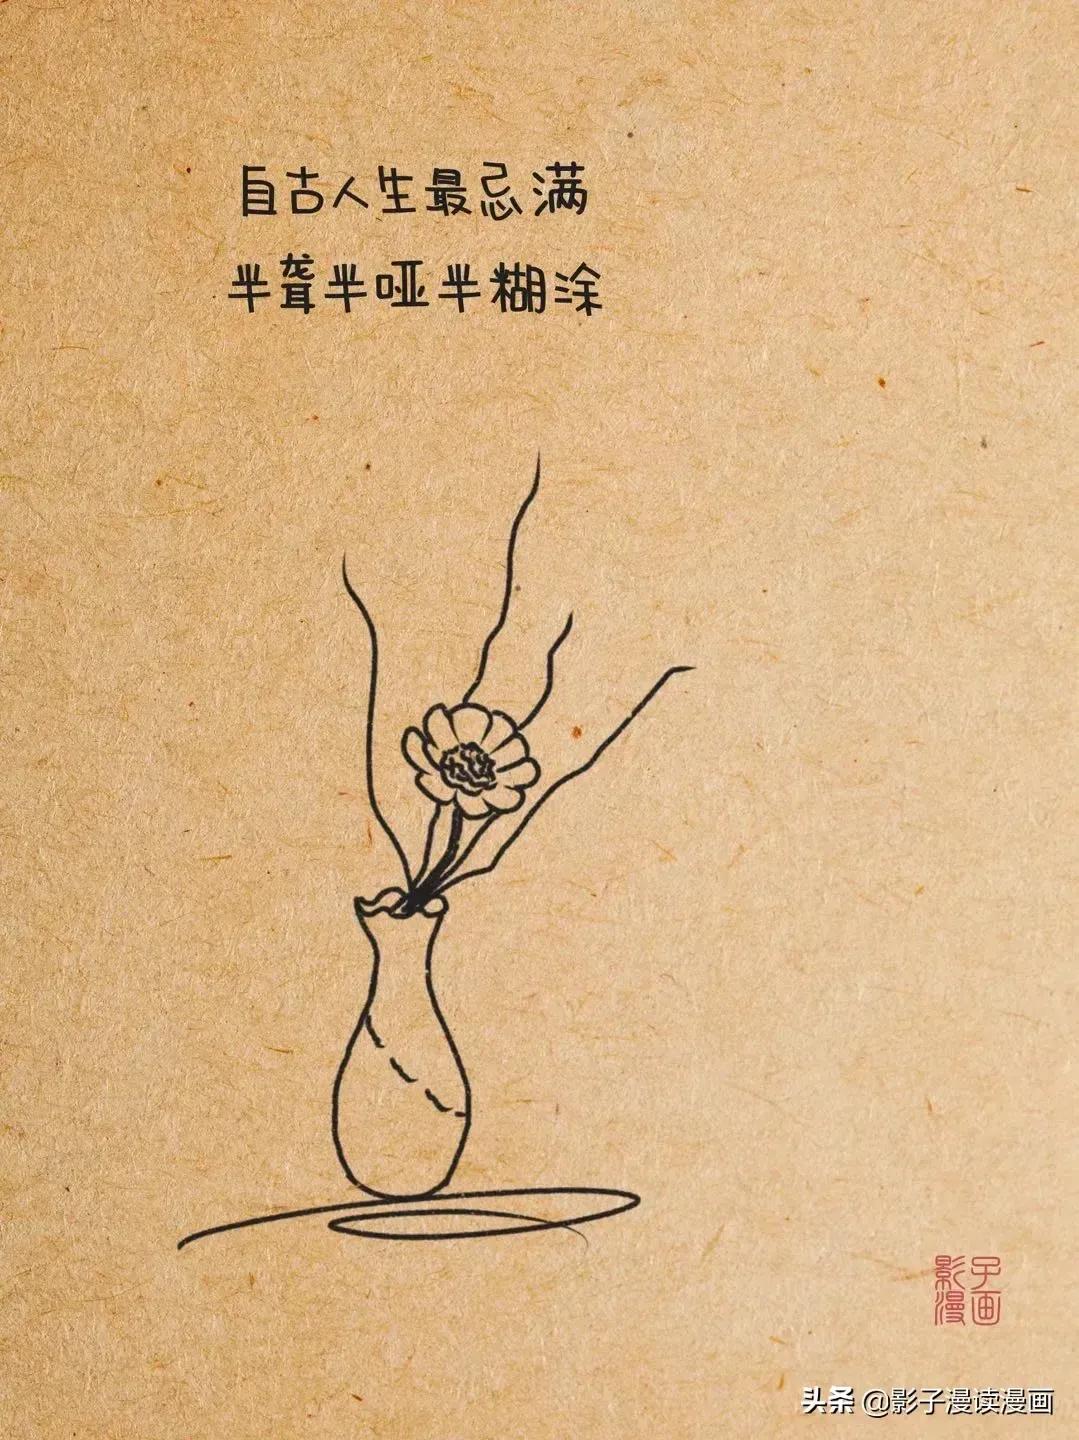 自古人生最忌满
半聋半哑半糊涂
影子
漫画
头条 @影子漫读漫画